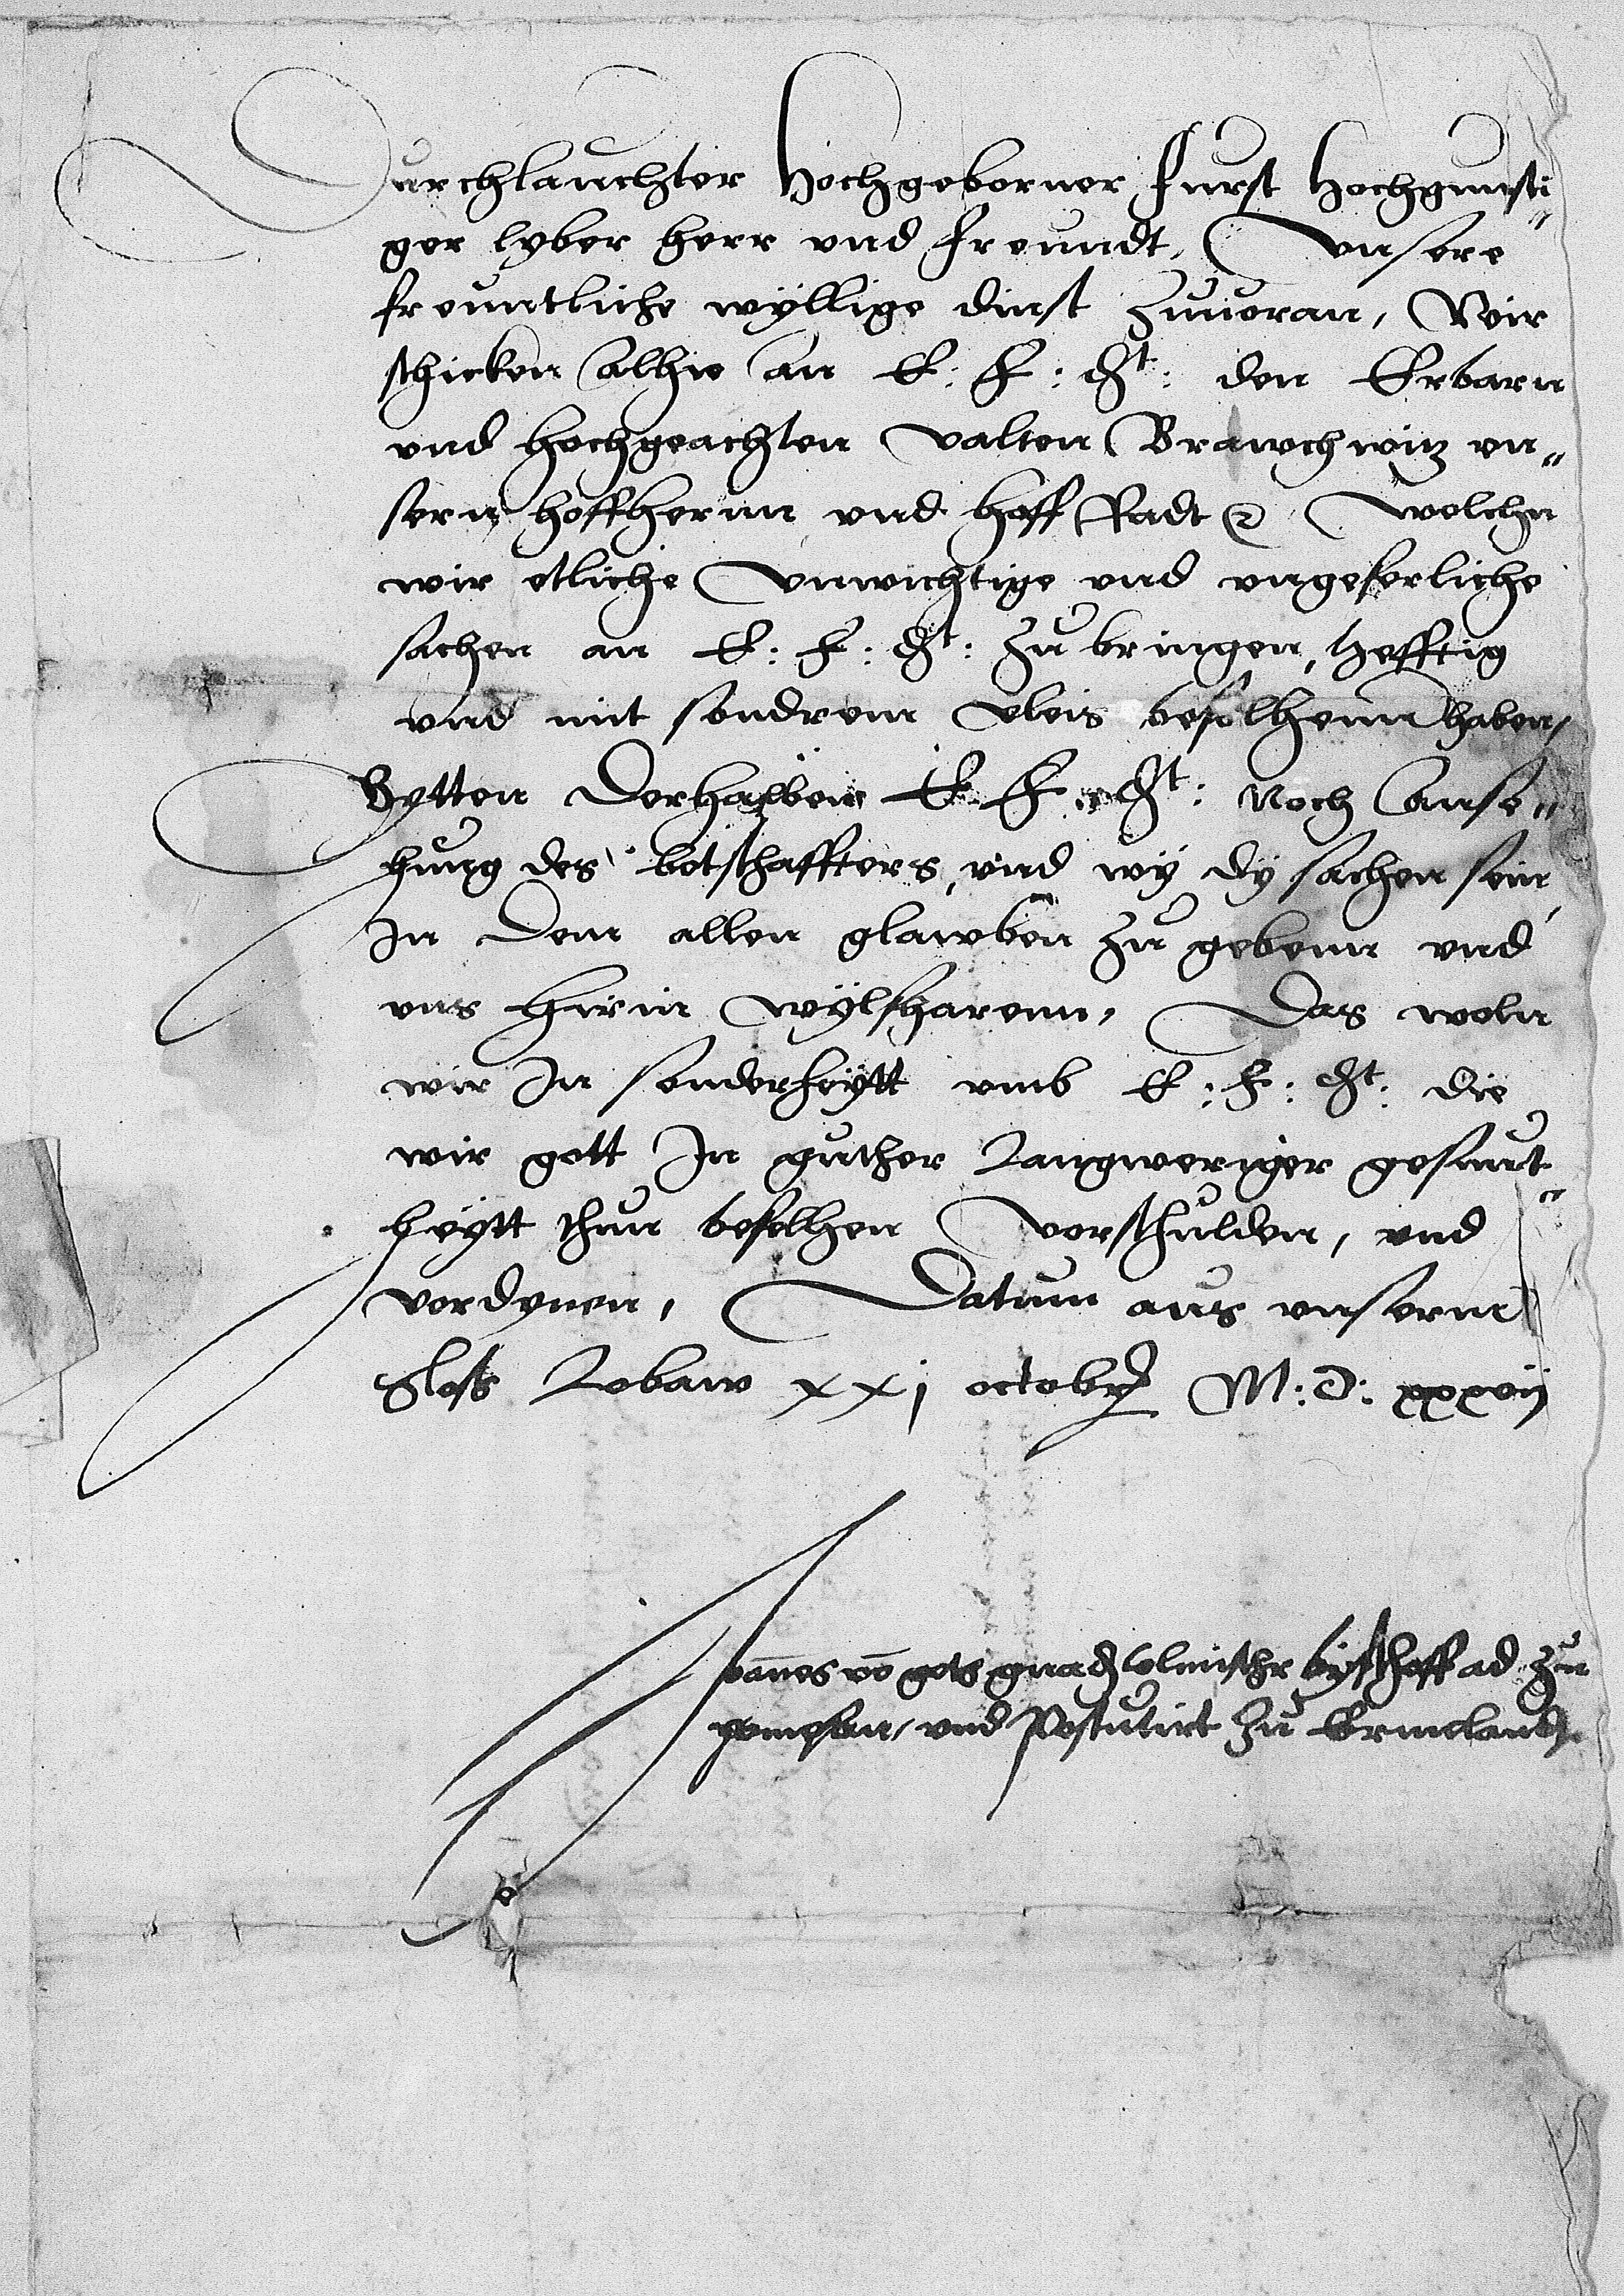 Durchlauchter hochgeborner furst hochgunsti„
ger lyber herr vnd freundt, Vnsere
freuntliche wyllige dinst zuuoran, Wir
schicken alhie an E: F: Dt: den Erbarn
vnd hochgeachten Valten Brawchwitz vn„
sern hoffhernn vnd hoff Radt welchn
wir etliche vnwichtige vnd vngeferliche
sachen an E: F: Dt: zu bringen, hefftig
vnd mit sondrem vleis befolhenn haben,
Bytten derhalben E. F. Dt: Noch Anse„
hung des botschaffters, vnd wy dy sachen sein,
In dem allen glawben zu gebenn vnd
vns hirin wylfharenn, Das woln
wir In sonderheytt vmb E: F: Dt: die
wir gott In guther langweriger gesunt„
heytt thun befelhen vorschulden, vnd
vordynen, Datum aus vnserm
Slos Lobaw xxj octobr M: D: xxxvij
Joannes vo gots gnad Colmischr byschoff ad zu
pomesan, vnd Postulirt zu Ermelandt